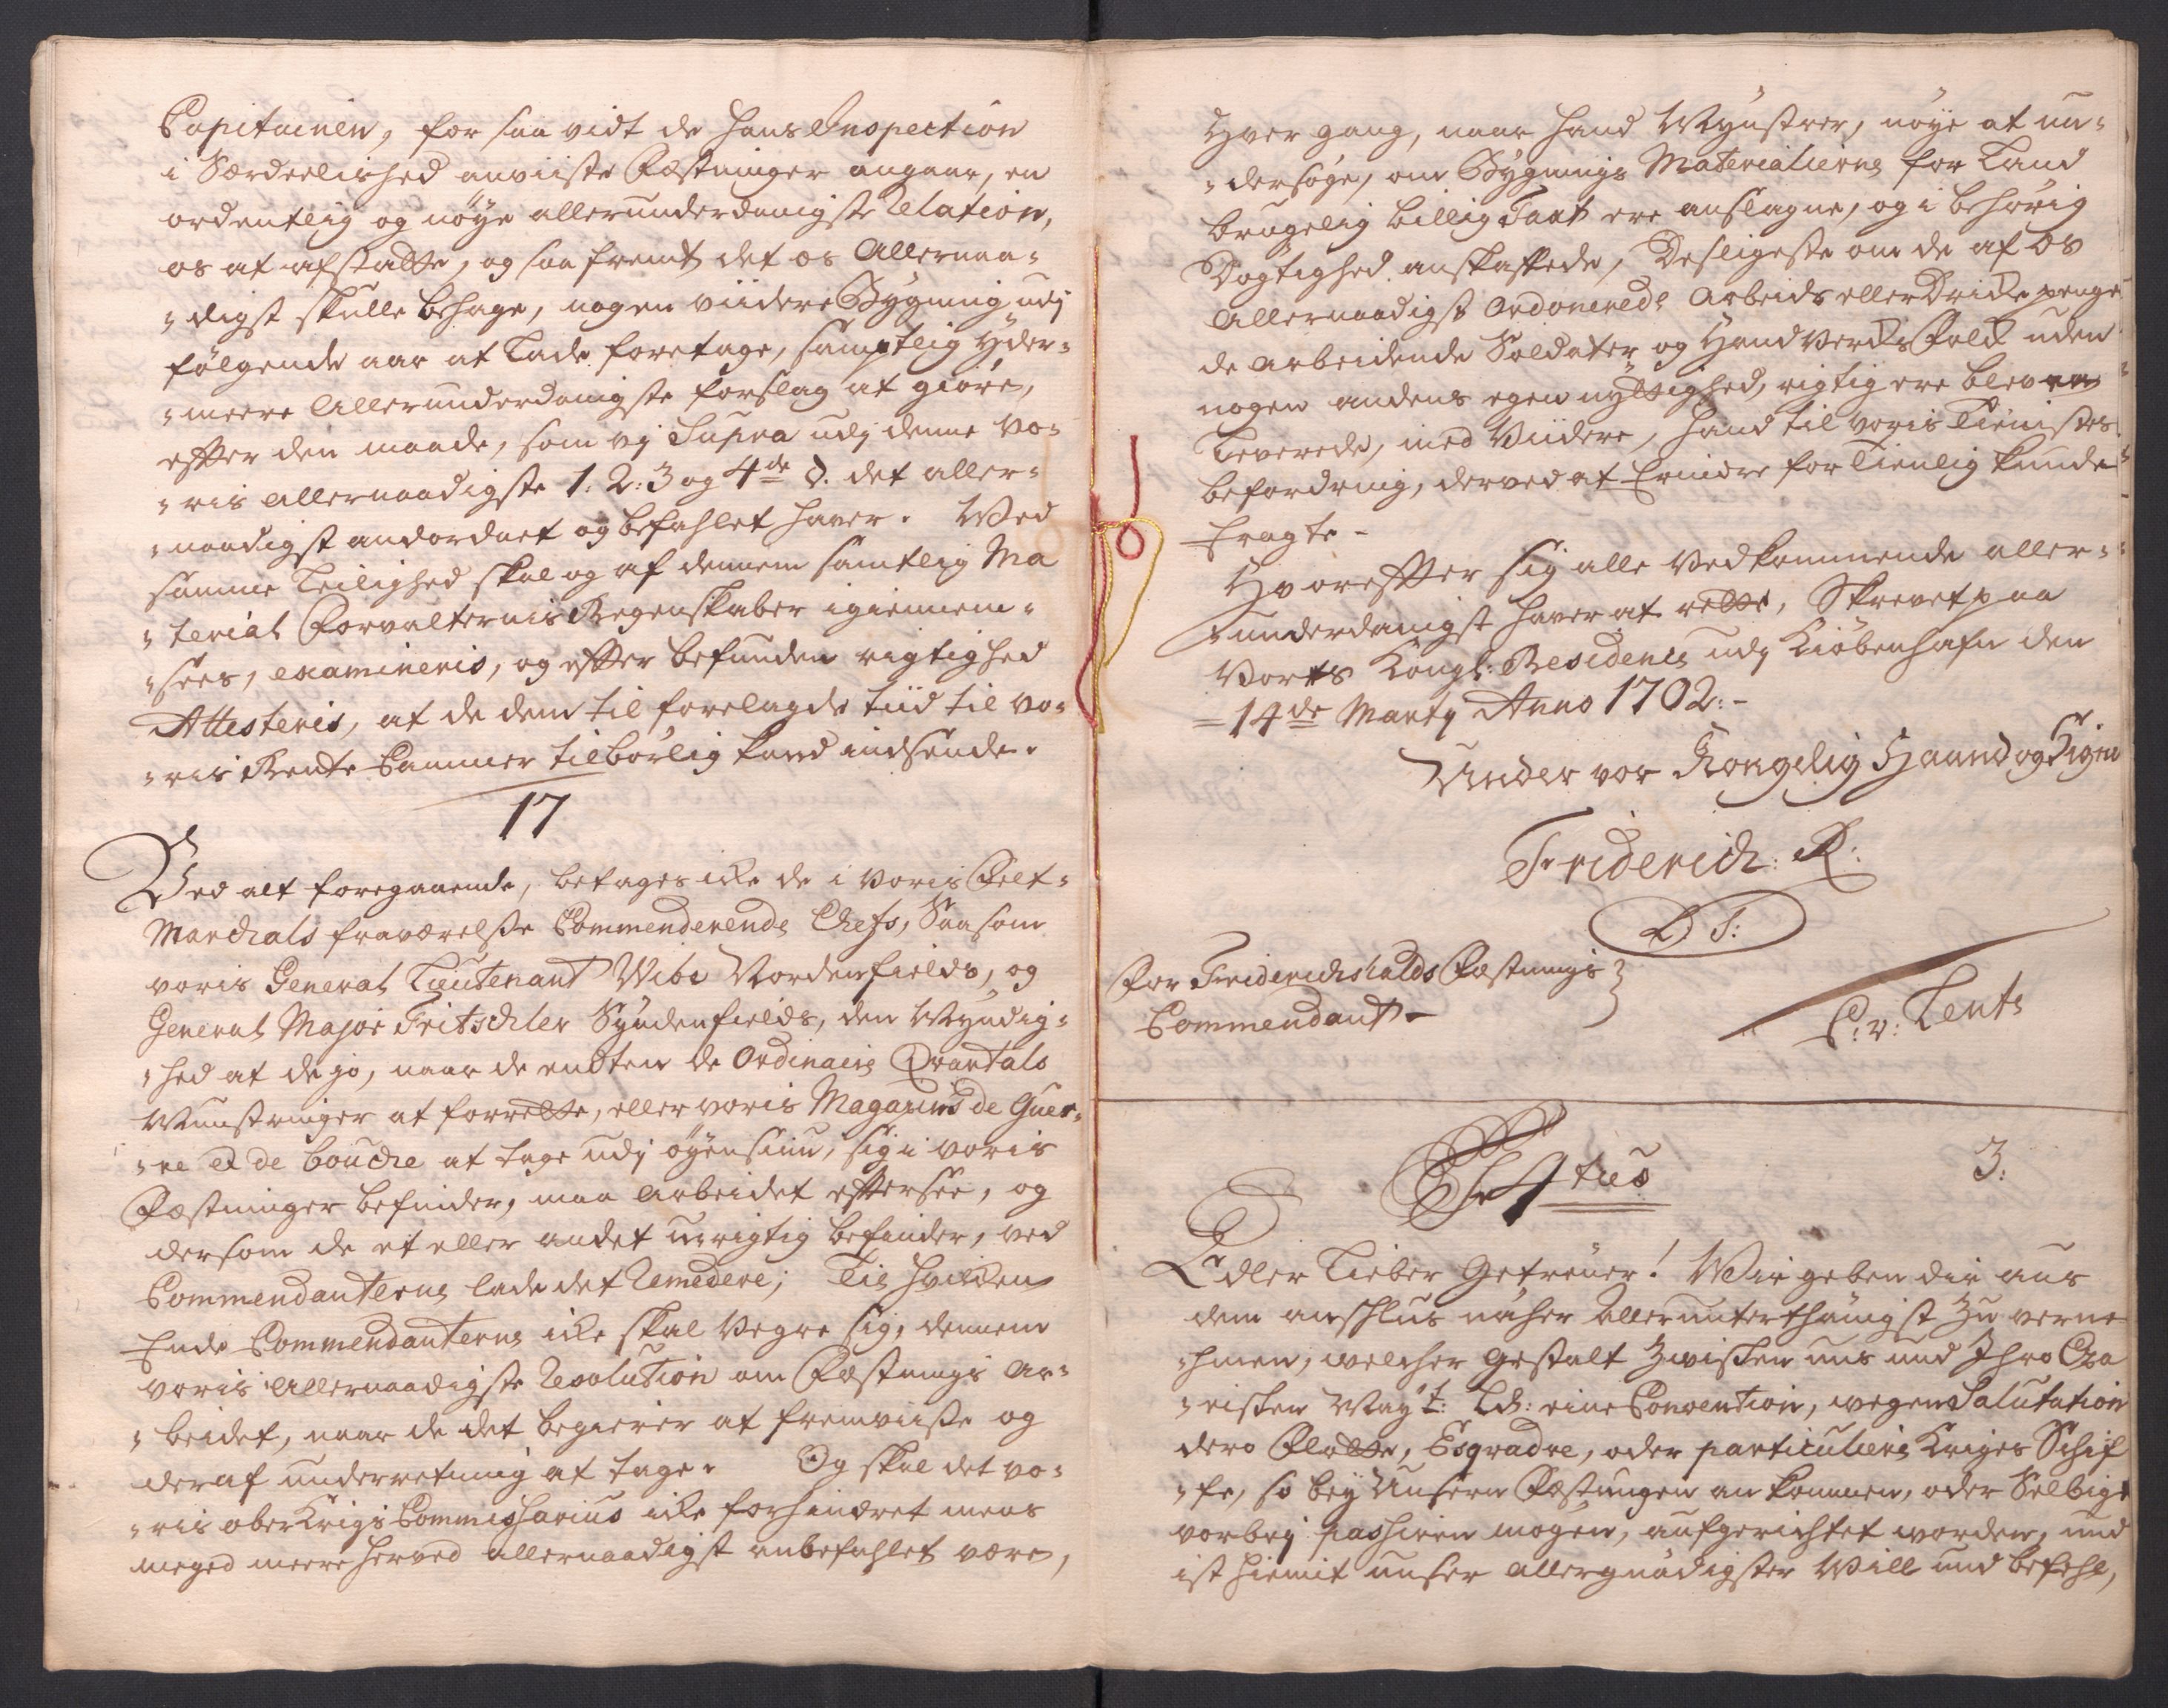 Capitainen, for saa vidt de hans Inspection
i Særdeelished anviiste Fæstninger angaar, en
ordentlig og nöye allerunderdanigste Relation,
os at afstatte, og saa fremt det os Allernaa=
=digst skulle behage, nogen viidere Bygning udj
fölgende aar at lade foretage, samptlig Yder=
=meere Allerunderdanigste forslag at giöre,
effter den maade, som vj Supra udj denne vo=
=ris allernaadigste 1. 2: 3 og 4de §. det aller=
=naadigst andordnet og befahlet haver. Ved
samme Leilighed skal og af dennem samtlig Ma
=terial Forvalternis Regenskaber igiennem=
=sees, examineris, og effter befunden rigtighed
Attesteris, at de dem til forelagde tiid til vo=
=ris Rente Cammer tilbörlig kand indsende.
17
Ved alt foregaaende, betages icke de i voris Felt=
Marchals fraværelsse Commenderende Chefs, Saasom
voris General Lieutenant Wibe Nordenfields, og
General Major Tritschler Syndenfields, den Myndig=
=hed at de jo, naar de endten de Ordinaire Qvartals
Munstringer at forrette, eller voris Magazins de Guer=
=re et de bouche at tage udj öyensiun, sig i voris
Fæstninger befinder, maa Arbeidet effersee, og
dersom de et eller andet urigtig befinder, ved
Commendanterne lade det Remedere; Til hvilcken
Ende Commendanterne icke skal Vegre sig, dennem
voris Allernaadigste Resolution om Fæstnings Ar=
=beidet, naar de det begierer at fremviisse og
deraf underretning at tage. Og skal det vo=
=ris ober Krigs Commissarius icke forhindret mens
meged meere herved allernaadigst anbefahlet være,
Hver gang, naar hand Mynstrer, nöye at un=
=dersöge, om Bygnings Materialierne for Land
brugelig billig Taxt ere anslagne, og i behörig
Dögtighed anskaffede, Desligeste om de af os
Allernaadigst Ordonerede Arbeids eller Dricke penge
de arbeidende Soldater og HandVercksFolck uden
nogen andens egen nyttighed, rigtig ere bleven
Leverede, med Viidere, hand til voris Tienistes
befordring, derved at Erindre for tienlig kunde
Eragte.
Hvoreffter sig alle Vedkommende aller=
=underdanigst haver at rette, Skrevet paa
Vorts Kongl: Residence udj Kiöbenhafn den
14de Marty Anno 1702.
Under vor Kongelig Haand og Signe
Friderich: R:
L. S:
For Friderichshalds Fæstnings
Commendant
C: v: Lente
3:
Edler Lieber Getreuer! Wir geben dir aus
dem anschlus näher Allerunterthänigst zu verne
=hmen, welcher gestalt zwischen uns und Ihro Cza
=rischen May:t: Ld: eine Convention, wegen Salutation
dero Flotte, Esqvadre, oder particuliere Kriges Schif
=fe, so bey unsern Fæstungen an kommen, oder Selbige
vorbey passiren mögen, aufgerichtet worden, und
ist hiemit unser allergnädigster Will und befehl,